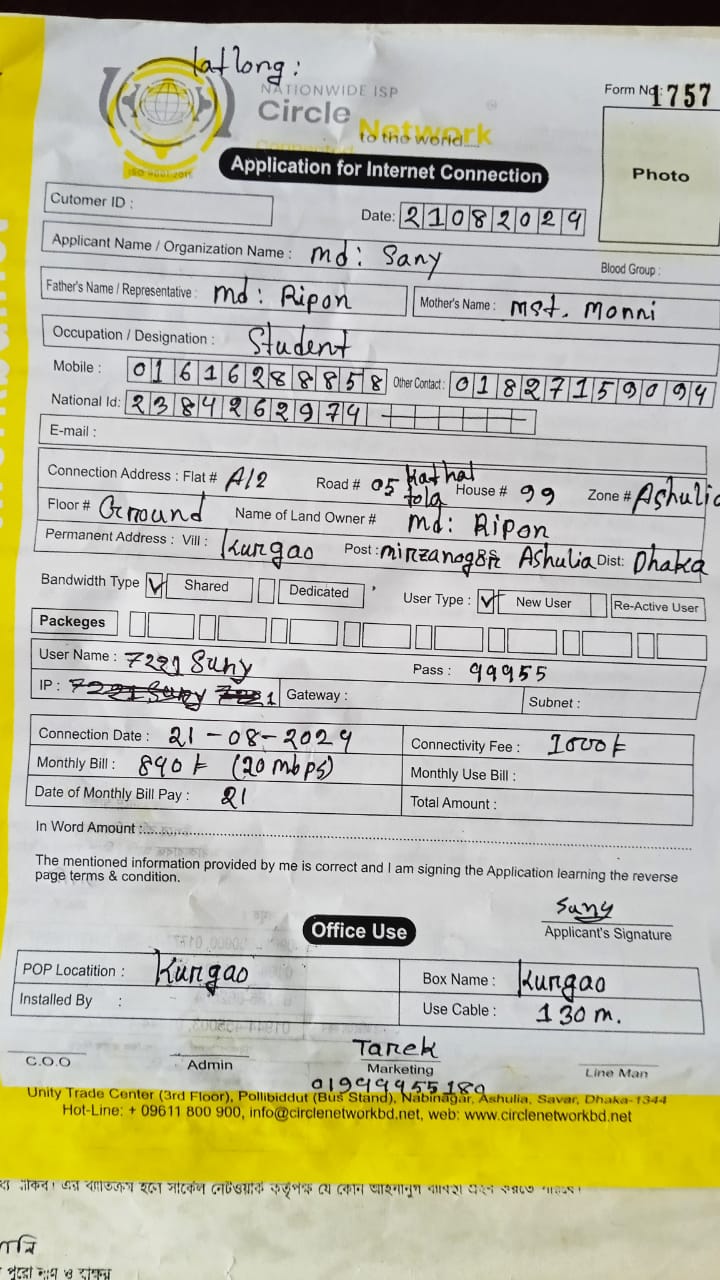 Latlong:
NATIONWIDE ISP
Circle Network
to the world....
ISO 9001:2015
Form No: 1757
Application for Internet Connection
Photo
Cutomer ID :
Date: 21082024
Applicant Name / Organization Name : Md: Sany
Blood Group :
Father's Name / Representative : Md: Ripon Mother's Name : Mst. Monni
Occupation / Designation : Student
Mobile : 01616288858 Other Contact : 01827159094
National Id: 2384262974
E-mail :
Connection Address : Flat # A/2 Road # 05 Kathal tola House # 99 Zone # Ashulia
Floor # Ground Name of Land Owner # Md: Ripon
Permanent Address : Vill : Kurgao Post : Mirzanogar Ashulia Dist: Dhaka
Bandwidth Type ✓ Shared Dedicated User Type : ✓ New User Re-Active User
Packeges
User Name : 7221 Sany Pass : 99955
IP : Gateway : Subnet :
Connection Date : 21-08-2024 Connectivity Fee : 1000৳
Monthly Bill : 890৳ (20 mbps) Monthly Use Bill :
Date of Monthly Bill Pay : 21 Total Amount :
In Word Amount :
The mentioned information provided by me is correct and I am signing the Application learning the reverse
page terms & condition.
Sany
Applicant's Signature
Office Use
POP Locatition : Kurgao Box Name : Kurgao
Installed By : Use Cable : 130 m.
Tarek
C.O.O Admin Marketing Line Man
Unity Trade Center (3rd Floor), Pollibiddut (Bus Stand), Nabinagar, Ashulia, Savar, Dhaka-1344
Hot-Line: + 09611 800 900, info@circlenetworkbd.net, web: www.circlenetworkbd.net